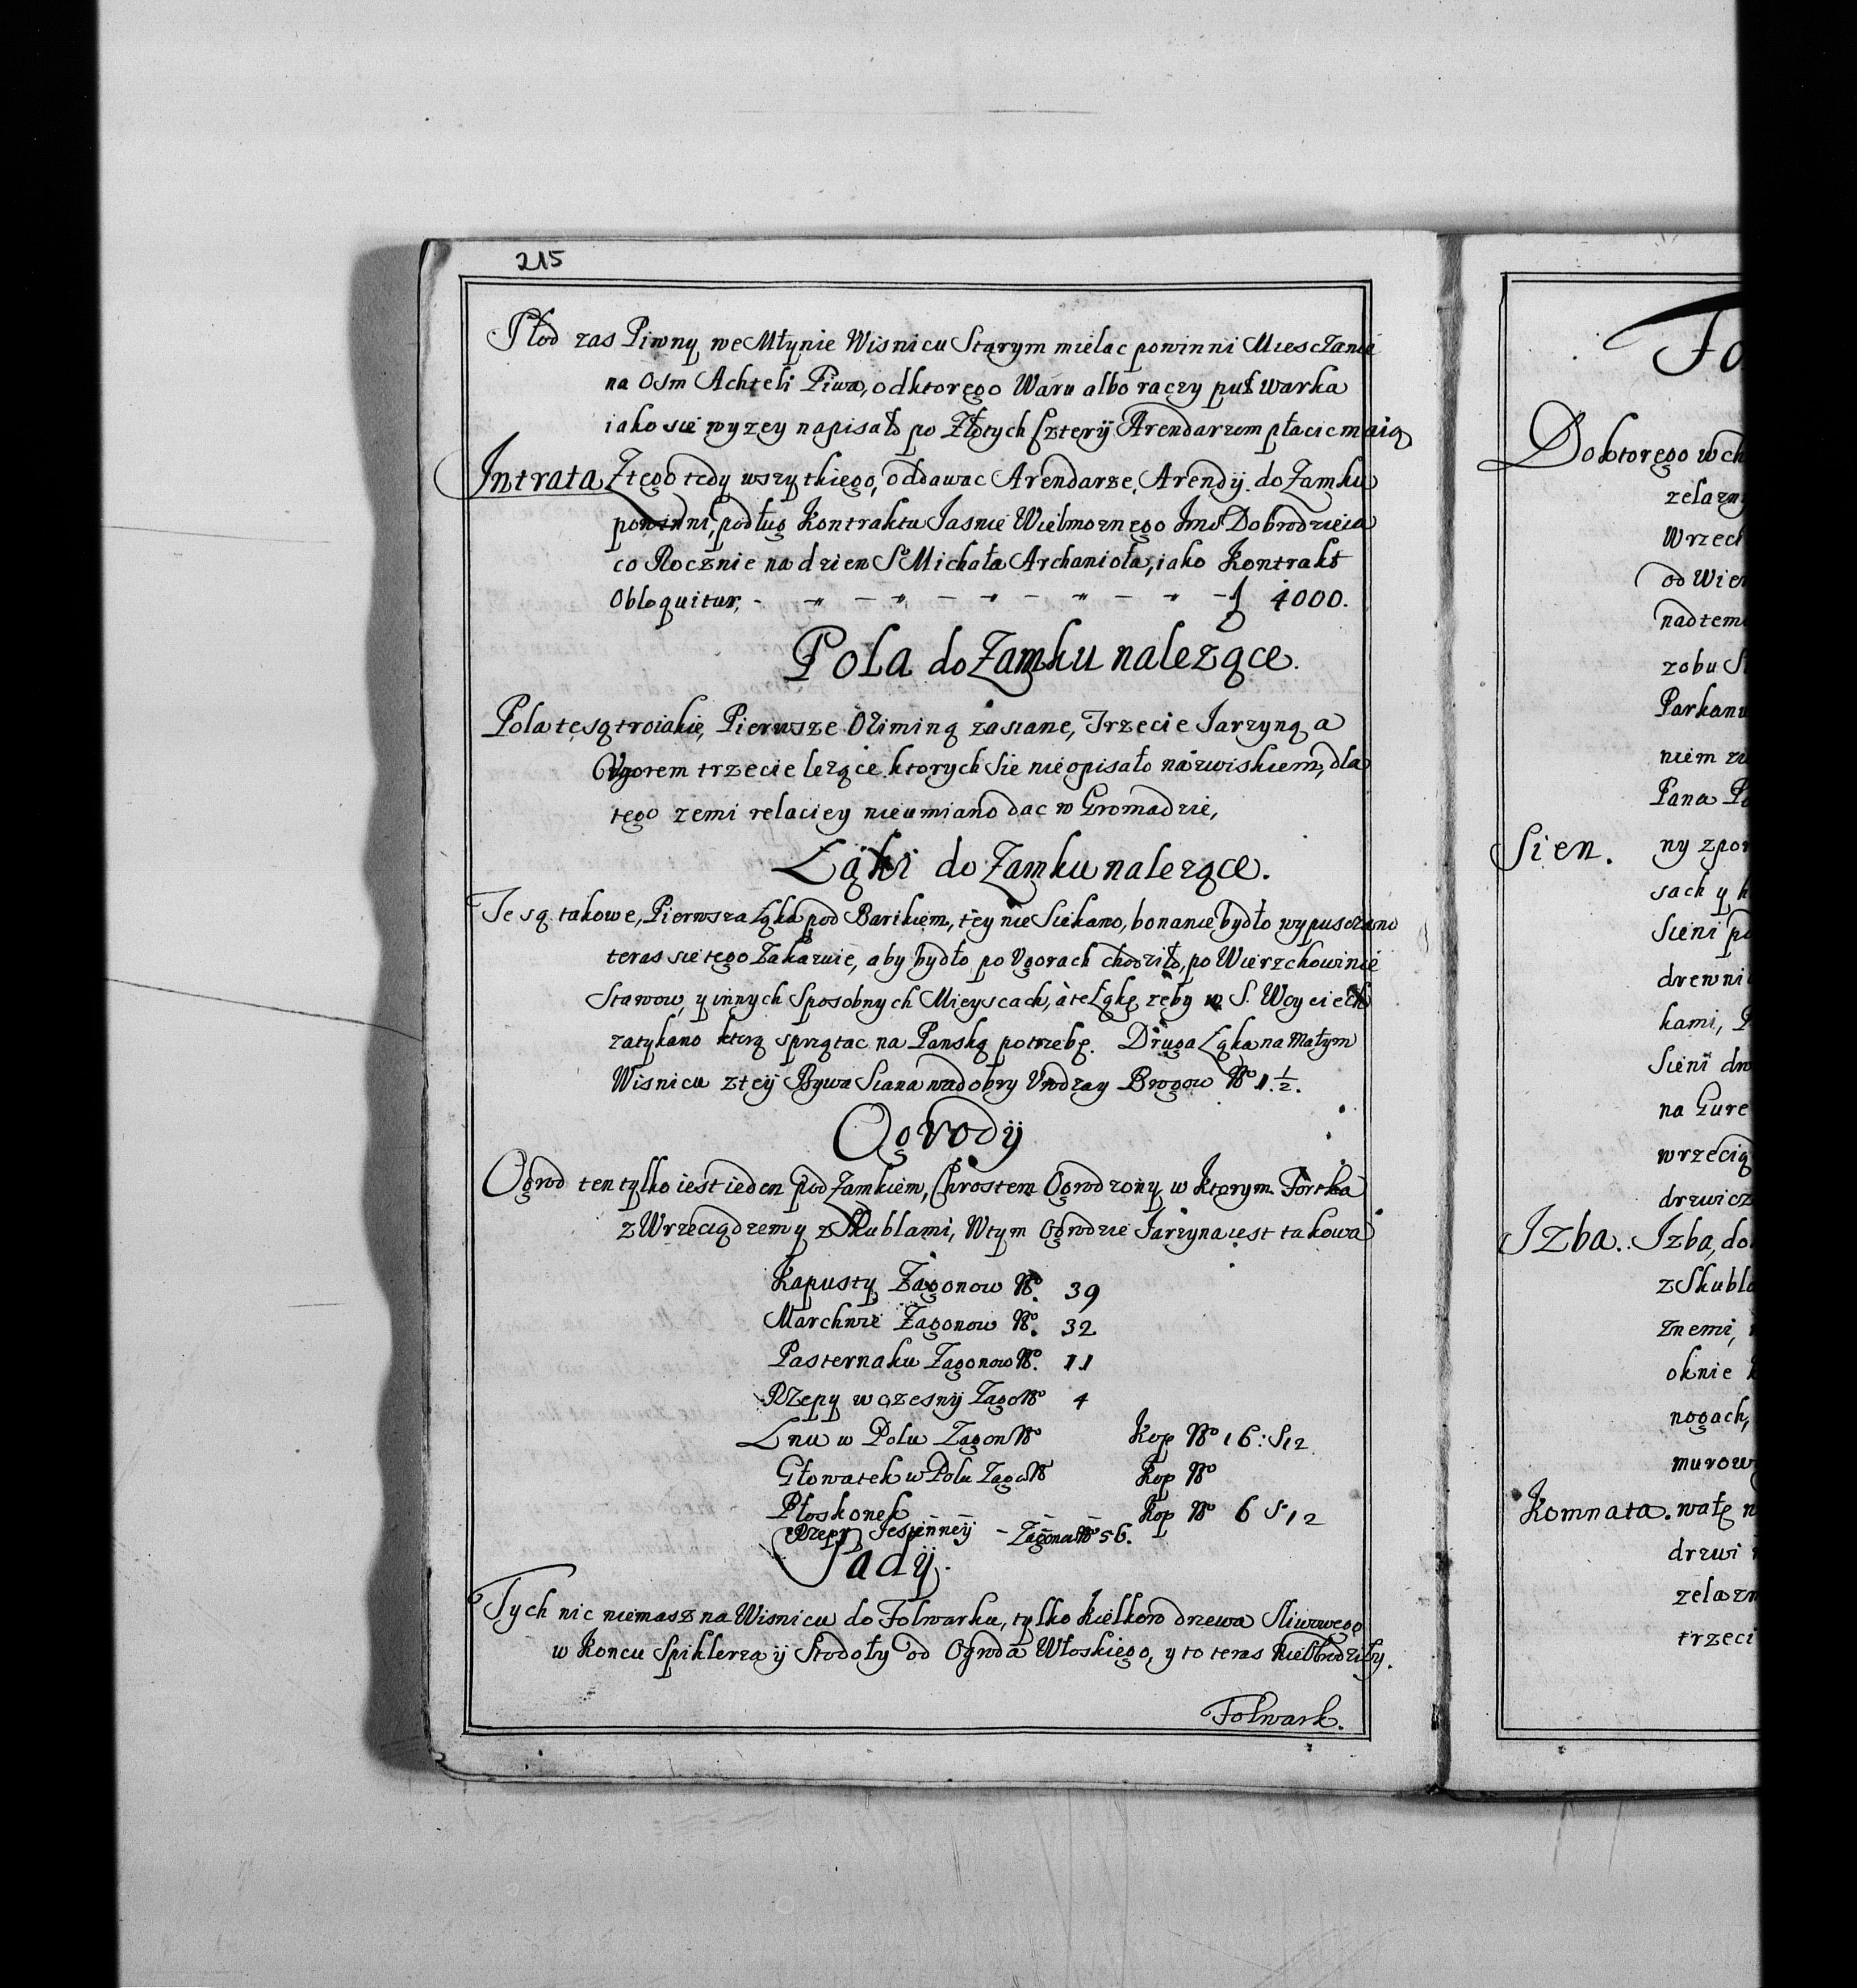 215
Słod zas Piwny we Młynie Wisnicu Starym mielac powinni Miesczanie
na Osm Achteli Piwa, odktorego Waru albo raczy puł warka
iako sie wyzey napisało po Złotych Czterÿ Arendarzom płacic maią
Intrata Ztego tedy wszytkiego, oddawac Arendarze, Arendÿ do Zamku
powinni, podług Kontraktu Iasnie Wielmoznego Jmo Dobrodzieia
co Rocznie na dzien So Michała Archanioła, iako Kontrakt
Obloquitur, - „ - „ - „ - „ - „ - f 4000.
Pola do Zamku nalezące.
Pola te są troiakie, Pierwsze Oziminą zasiane, Trzecie Iarzyną a
Vgorem trzecie lezące ktorych sie nieopisało nazwiskiem, dla
tego zemi relaciey nieumiano dac w Gromadzie,
Łąki do Zamku nalezące.
Te są takowe, Pierwsza Łąka pod Barikiem, tey nie Siekano, bo nanie bydło wypusczano
teras sie tego Zakazuie, aby bydło po Vgorach chodziło, po Wierzchowinie
Stawow, y innych Sposobnych Mieyscach, a te Łąkę zeby w S. Woyciech
zatykano ktorą sprzątac na Panską potrzebę. Druga Łąka na Małym
Wisnicu ztey Bywa Siana wadobry Vrodzay Brogow No 1. 1/2.
Ogrodÿ
Ogrod ten tylko iest ieden pod Zamkiem, Chrostem Ogrodzony w ktorym Fortka
z Wrzeciądzem y z Skublami, Wtym Ogrodzie Iarzyna iest takowa
Kapusty Zagonow No. 39
Marchwie Zagonow No. 32
Pasternaku Zagonow No. 11
Rzepy wczesnÿ Zago No 4
Lnu w Polu Zagon No Kop No 16: S12
Głowatek w Polu Zago No Kop No
Płoskonek Kop No 6 S 12
Rzepy Iesienneÿ - Zagonow No 56.
Sadÿ.
Tych nic niemasz na Wisnicu do Folwarku, tylko kielkoro drzewa Sliwowego
w Koncu Spiklerza ÿ Stodoły od Ogroda Włoskiego, y to teras nie Obrodziły.
Folwark.
Fo
Doktorego wch
zelazn
Wrzeci
od Wier
nadtem
zobu S
Parkanu
niem zu
Pana Po
Sien. ny zpor
sach y k
Sieni po
drewni
kami, P
Sieni drw
na Gure
wrzecią
drzwicz
Izba. Izba, do
z Skubla
znemi,
oknie
nogach,
murow
Komnata. watę n
drzwi
zelazn
trzeci